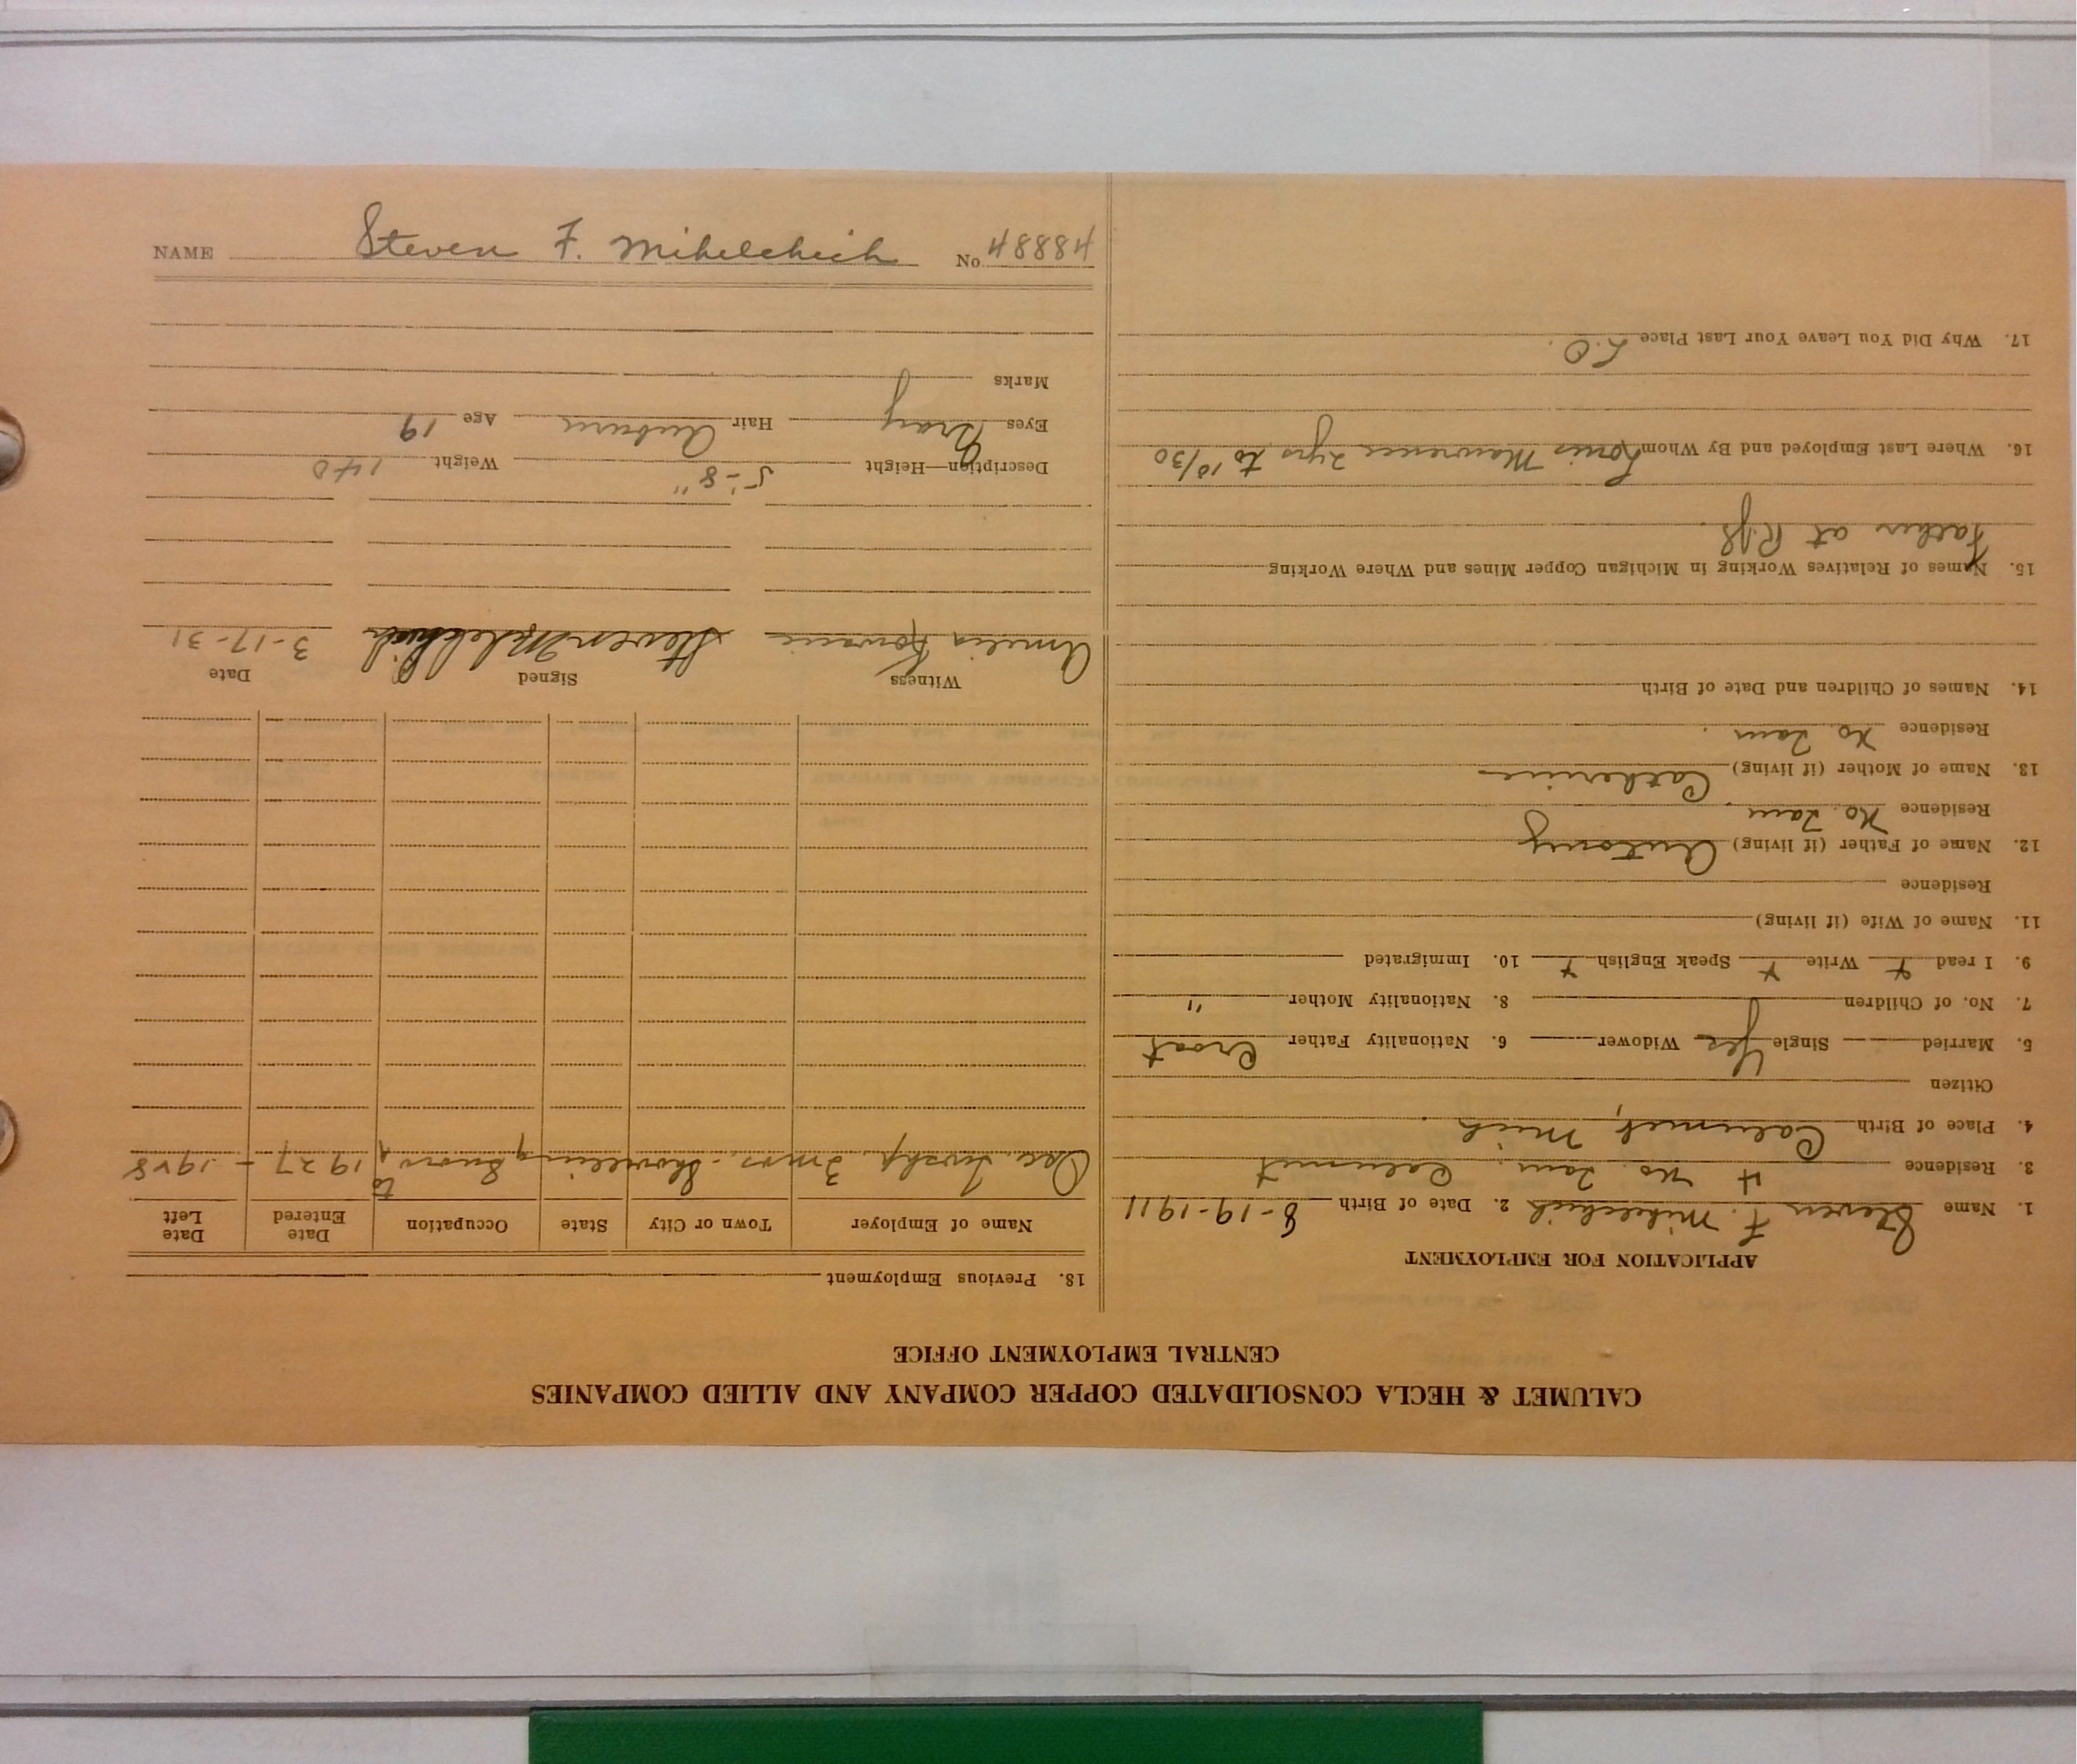 NAME Steven F. Mihelchich No. 48884
CALUMET & HECLA CONSOLIDATED COPPER COMPANY AND ALLIED COMPANIES
CENTRAL EMPLOYMENT OFFICE
APPLICATION FOR EMPLOYMENT
1. Name Steven F. Mihelchich 2. Date of Birth 8-19-1911
3. Residence 4 No. Tam. Calumet
4. Place of Birth Calumet, Mich.
Citizen
5. Married Single Yes Widower 6. Nationality Father Croat
7. No. of Children 8. Nationality Mother "
9. I read + Write + Speak English + 10. Immigrated
11. Name of Wife (if living)
Residence
12. Name of Father (if living) Antony
Residence No. Tam.
13. Name of Mother (if living) Catherine
Residence No. Tam.
14. Names of Children and Date of Birth
15. Names of Relatives Working in Michigan Copper Mines and Where Working
Father at
16. Where Last Employed and By Whom Louis 2 yrs to 10/30
17. Why Did You Leave Your Last Place L.O.
18. Previous Employment
Name of Employer Town or City State Occupation Date Entered Date Left
3 mos. Shovelling Snow 1927 to 1928
Witness Signed Date
Amelia Steven Mihelchich 3-17-31
Description—Height 5'-8" Weight 140
Eyes Gray Hair Auburn Age 19
Marks